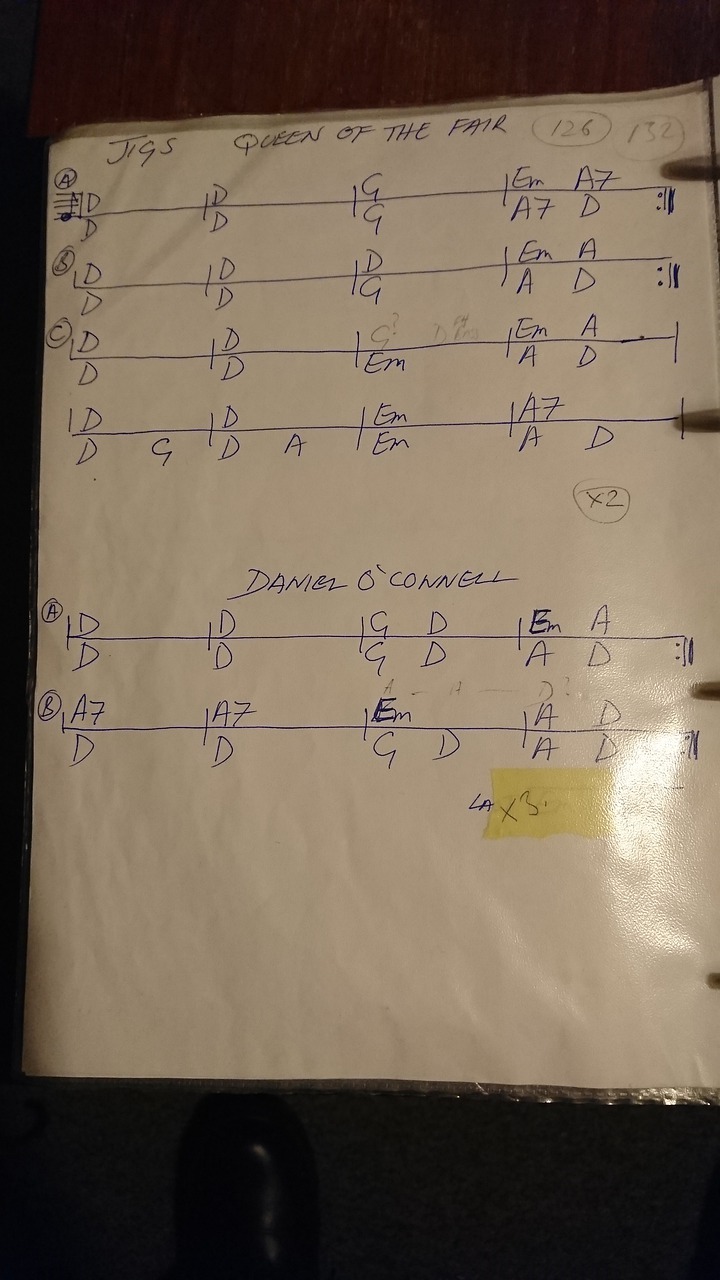 JIGS QUEEN OF THE FAIR 126 132
A D D G Em A7
D D G A7 D
B D D D Em A
D D G A D
C D D G? D Em A
D D Em A D
D D Em A7
D G D A Em A D
x2
DANIEL O'CONNELL
A D D G D Em A
D D G D A D
A - A - D?
B A7 A7 Em A D
D D G D A D
LA x3.